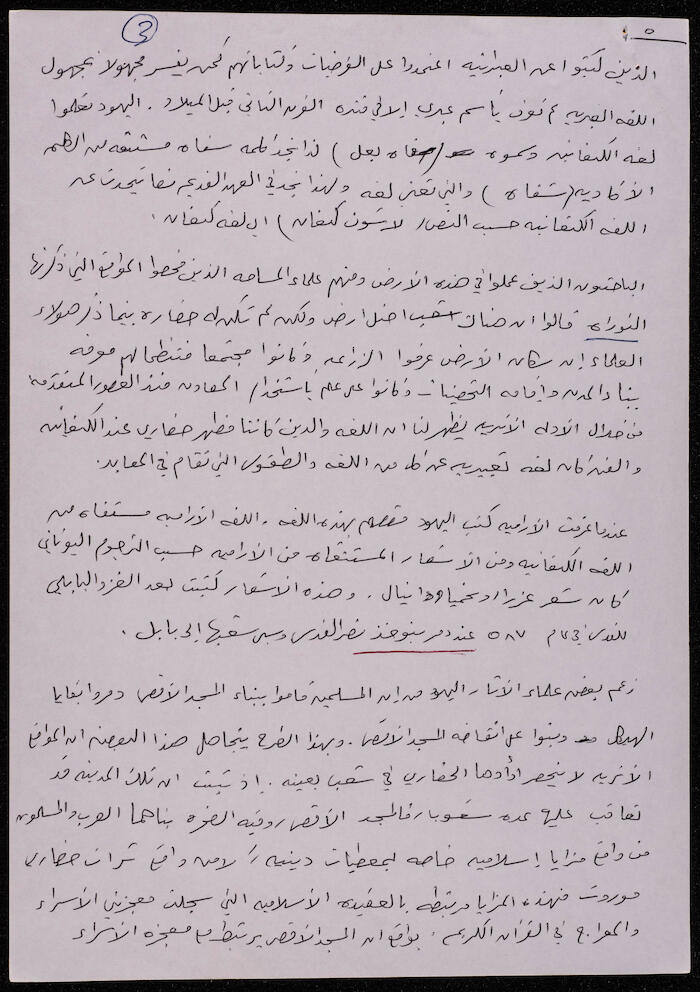 3
٥
الذين كتبوا عن العبرانيه اعتمدوا على الفرضيات وكتاباتهم كمن يفسر مجهولا بمجهول
اللغه العبريه لم تعرف بأسم عبري إلا في فتره القرن الثاني قبل الميلاد . اليهود تعلموا
لغه الكنعانيه وسموه (شفاه بعل) لذا نجد كلمه سفاه مشتقه من
الأكاديه (شفاه) والتي تعني لغه ولهذا نجد في العهد القديم نصا يتحدث عن
اللغه الكنعانيه حسب النص (لاشون كنعان) اي لغه كنعان .
الباحثون الذين عملوا في هذه الأرض ومنهم علماء المساحه الذين فحصوا المواقع التي ذكرتها
التوراه قالوا ان هناك شعب احتل ارض ولكن لم تكن له حضاره بينما ذكر هؤلاء
العلماء إن سكان الأرض عرفوا الزراعه وكانوا مجتمعا منتظما لهم معرفه
ببناء المدن وإقامه التحصينات وكانوا على علم بأستخدام المعادن منذ العصور المتقدمه
من خلال الادله الأثريه يظهر لنا ان اللغه والدين كانتا مظهر حضاري عند الكنعانيه
والفن كان لغه تعبيريه عن كلا من اللغه والطقوس التي تقام في المعابد .
عندما عرفت الأراميه كتب اليهود قصصهم بهذه اللغه . اللغه الأراميه مستقاه من
اللغه الكنعانيه ومن الاسفار المستقاه من الأراميه حسب الترجوم اليوناني
كان سفر عزرا ونحميا ودانيال . وهذه الاسفار كتبت بعد الغزو البابلي
للقدس في عام ٥٨٧ عندما نبوخذ نصر القدس وسبى شعبها إلى بابل .
زعم بعض علماء الأثار اليهود من إن المسلمين قاموا ببناء المسجد الأقصى دمروا بقايا
الهيكل وبنوا على انقاضه المسجد الأقصى . وبهذا الطرح يتجاهل هذا البعض ان المواقع
الأثريه لا ينحصر أداؤها الحضاري في شعب بعينه . إذ تبت ان تلك المدينه قد
تعاقب عليها عده شعوب فالمسجد الأقصى وقبه الصخره بناهما العرب والمسلمون
من واقع مزايا إسلاميه خاصه بمعطيات دينيه لا من واقع تراث حضاري
موروث فهذه المزايا مرتبطه بالعقيده الأسلاميه التي سجلت معجزتي الأسراء
والمعراج في القرآن الكريم . بواقع ان المسجد الأقصى يرتبط مع معجزه الأسراء